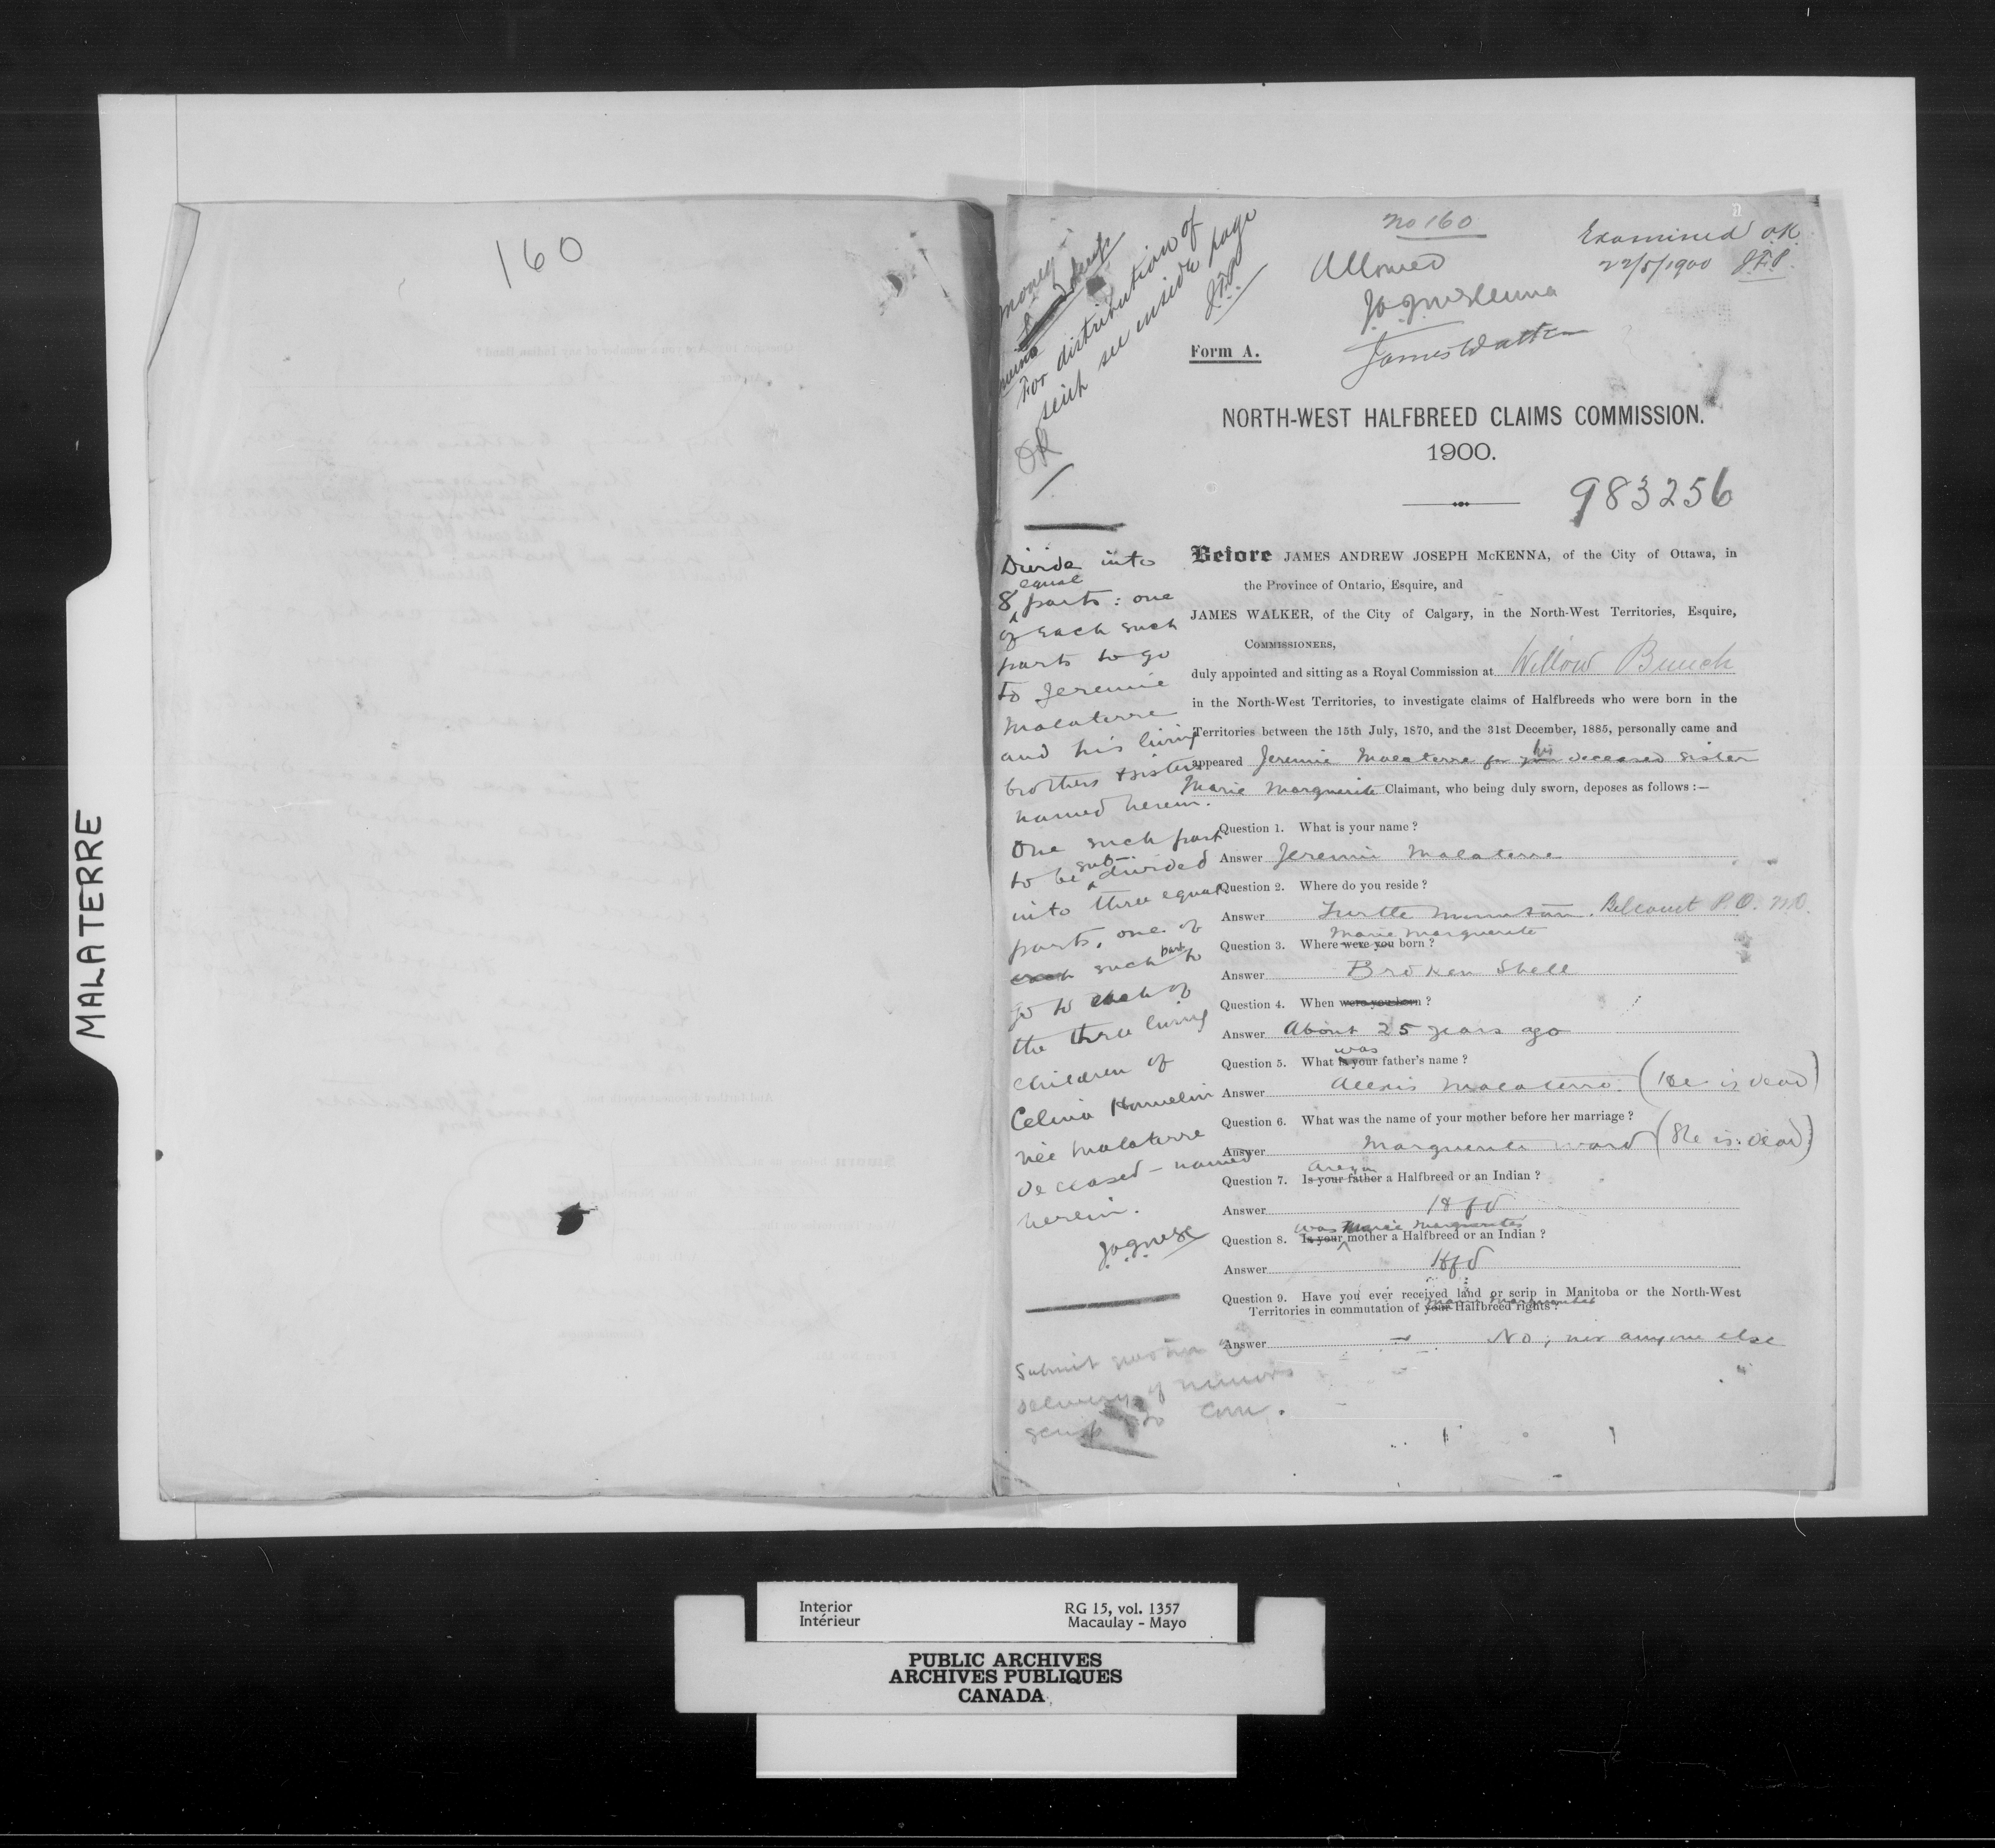 MALATERRE
160
No 160
Allowed
Examined O.K.
22/5/1900 J.F.P.
J.A.J. McKenna
James Walker
money
For distribution of
scrip see inside page
OK
Form A.
NORTH-WEST HALFBREED CLAIMS COMMISSION.
1900.
983256
Before JAMES ANDREW JOSEPH McKENNA, of the City of Ottawa, in
the Province of Ontario, Esquire, and
JAMES WALKER, of the City of Calgary, in the North-West Territories, Esquire,
COMMISSIONERS,
duly appointed and sitting as a Royal Commission at Willow Bunch
in the North-West Territories, to investigate claims of Halfbreeds who were born in the
Territories between the 15th July, 1870, and the 31st December, 1885, personally came and
appeared Jeremie Malaterre for his deceased sister
Marie Marguerite Claimant, who being duly sworn, deposes as follows :—
Question 1. What is your name ?
Answer Jeremie Malaterre
Question 2. Where do you reside ?
Answer Turtle Mountain. Belcourt P.O. N.D.
Marie Marguerite
Question 3. Where were you born ?
Answer Broken Shell
Question 4. When were you born ?
Answer About 25 years ago
was
Question 5. What is your father's name ?
Answer Alexis Malaterre (He is dead)
Question 6. What was the name of your mother before her marriage ?
Answer Marguerite Ward (She is dead)
Are you
Question 7. Is your father a Halfbreed or an Indian ?
Answer Hfd
was Marie Marguerites
Question 8. Is your mother a Halfbreed or an Indian ?
Answer Hfd
Question 9. Have you ever received land or scrip in Manitoba or the North-West
Marie Marguerites
Territories in commutation of your Halfbreed rights ?
Answer No, nor anyone else
Divide into
equal
8 parts : one
of each such
parts to go
to Jeremie
Malaterre
and his living
brothers & sisters
named herein.
One such part
to be sub-divided
into three equal
parts, one of
each such part to
go to each of
the three living
children of
Celina Hamelin
née Malaterre
deceased - named
herein.
J.A.J. McK
Submit question of
delivery of minors
scrip to Com.
Interior
Intérieur
RG 15, vol. 1357
Macaulay - Mayo
PUBLIC ARCHIVES
ARCHIVES PUBLIQUES
CANADA